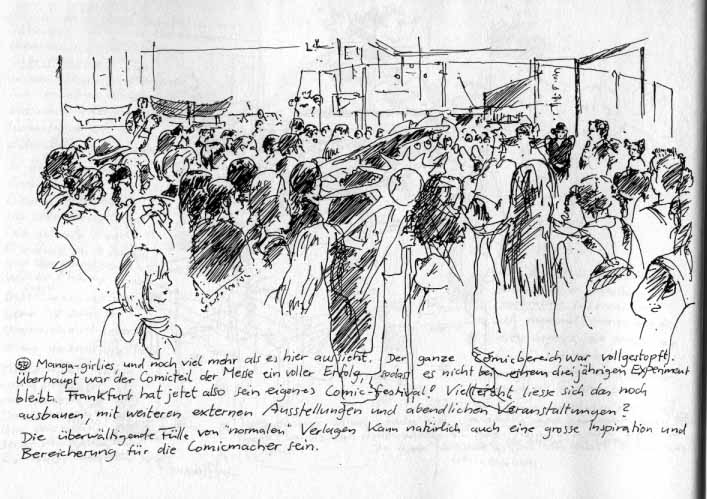 58 Manga-girlies, und noch viel mehr als es hier aussieht. Der ganze Comicbereich war vollgestopft.
Überhaupt war der Comicteil der Messe ein voller Erfolg, sodass es nicht bei einem dreijährigen Experiment
bleibt. Frankfurt hat jetzt also sein eigenes Comic-festival! Vielleicht liesse sich das noch
ausbauen, mit weiteren externen Ausstellungen und abendlichen Veranstaltungen?
Die überwältigende Fülle von "normalen" Verlagen kann natürlich auch eine grosse Inspiration und
Bereicherung für die Comicmacher sein.